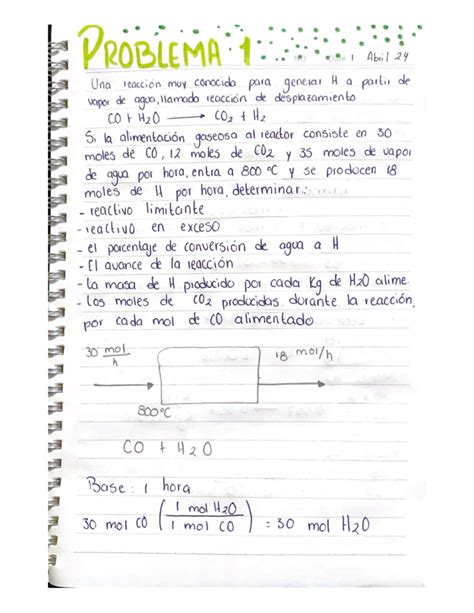 PROBLEMA 1
Abril 24
Una reacción muy conocida para generar H a partir de
vapor de agua, llamado reacción de desplazamiento
CO + H2O → CO2 + H2
Si la alimentación gaseosa al reactor consiste en 30
moles de CO, 12 moles de CO2 y 35 moles de vapor
de agua por hora, entra a 800 °C y se producen 18
moles de H por hora, determinar:
- reactivo limitante
- reactivo en exceso
- el porcentaje de conversión de agua a H
- El avance de la reacción
- La masa de H producido por cada Kg de H2O alime.
- Los moles de CO2 producidas durante la reacción,
por cada mol de CO alimentado.
30 mol/h
18 mol/h
800°C
CO + H2O
Base: 1 hora
30 mol CO (1 mol H2O / 1 mol CO) = 30 mol H2O